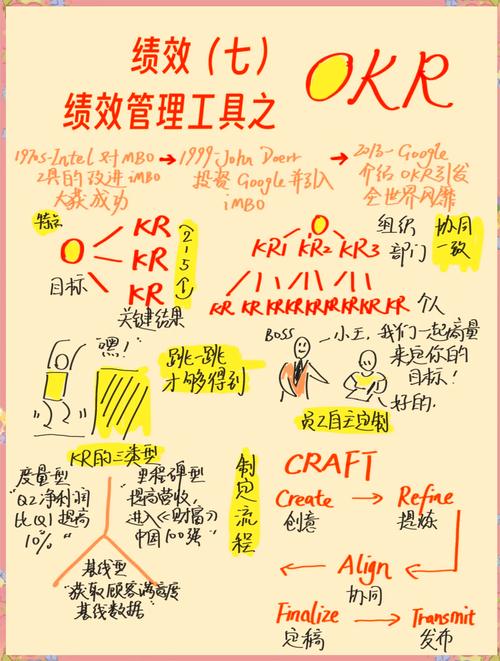 绩效（七）
绩效管理工具之
OKR
1970s-Intel对MBO
工具的改进iMBO
大获成功
1999-John Doerr
投资Google并引入
iMBO
2013-Google
介绍OKR引发
全世界风靡
特点
O
目标
KR
KR
KR
(2-5个)
关键结果
O
KR1 KR2 KR3
KR KR KR KR KR KR KR
组织
部门
个人
协同
一致
嘿!
跳一跳
才够得到
BOSS
小王,我们一起商量
来定你的
目标!
好的.
员工自主定制
KR的三类型
度量型
"Q2净利润
比Q1提高
10%"
里程碑型
"提高营收,
进入《财富》
中国100强"
基线型
"获取顾客满意度
基线数据"
制定流程
CRAFT
Create → Refine
创意 提炼
Align
协同
Finalize → Transmit
定稿 发布